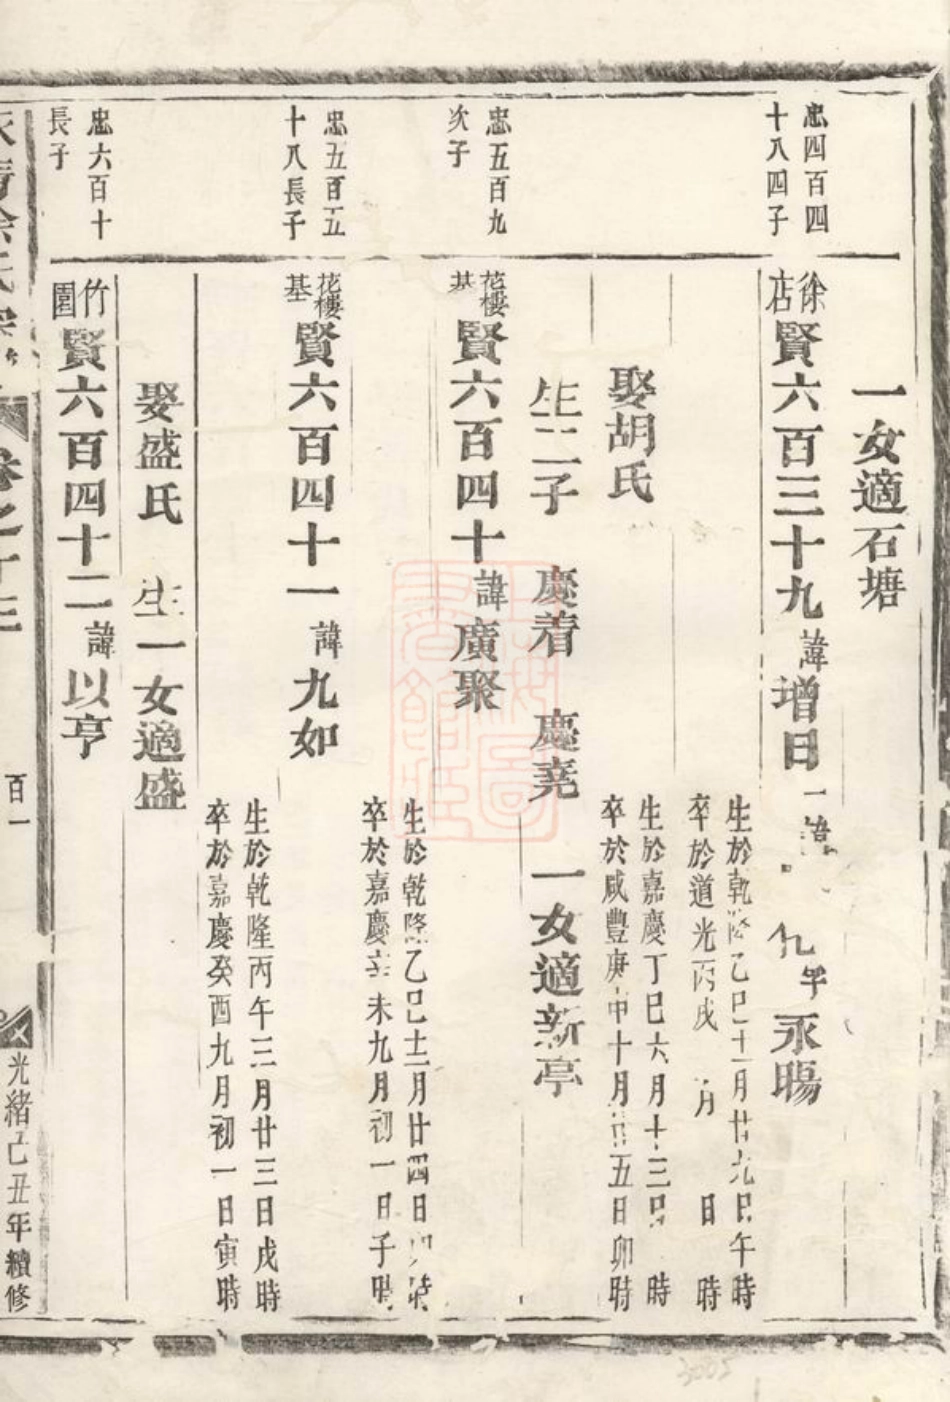 一女適石塘
忠四百四
十八四子
徐店
賢六百三十九諱增日一
字永暘
生於乾隆乙巳十一月廿九日午時
卒於道光丙戌 月 日 時
娶胡氏
生於嘉慶丁巳六月十三日 時
卒於咸豐庚申十月廿五日卯時
生二子 慶着 慶堯 一女適新亭
忠五百九
次子
花樓基
賢六百四十諱廣聚
生於乾隆乙巳十二月廿四日 時
卒於嘉慶辛未九月初一日子時
忠五百五
十八長子
花樓基
賢六百四十一諱九如
生於乾隆丙午三月廿三日戌時
卒於嘉慶癸酉九月初一日寅時
娶盛氏 生一女適盛
忠六百十
長子
竹園
賢六百四十二諱以亨
余氏宗
卷之十三
百一
光緒己丑年續修